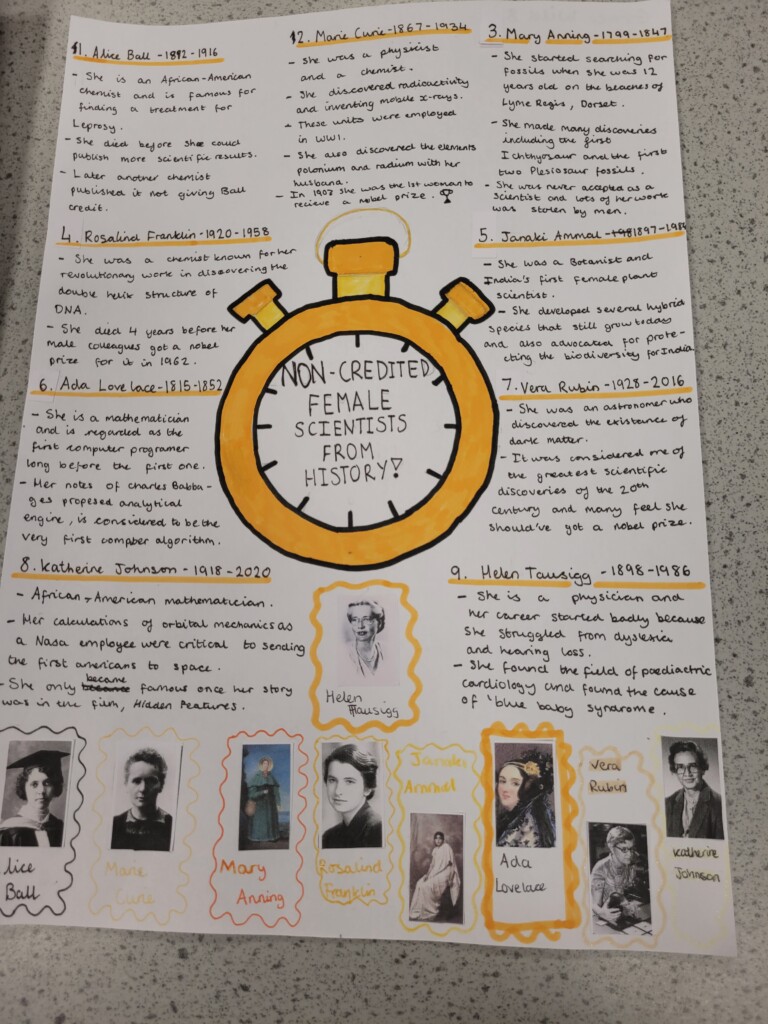 1. Alice Ball - 1892 - 1916
- She is an African-American
chemist and is famous for
finding a treatment for
Leprosy.
- She died before she could
publish more scientific results.
- Later another chemist
published it not giving Ball
credit.
2. Marie Curie - 1867 - 1934
- She was a physicist
and a chemist.
- She discovered radioactivity
and inventing mobile x-rays.
- These units were employed
in WW1.
- She also discovered the elements
polonium and radium with her
husband.
- In 1903 she was the 1st woman to
recieve a nobel prize.
3. Mary Anning - 1799 - 1847
- She started searching for
fossils when she was 12
years old on the beaches of
Lyme Regis, Dorset.
- She made many discoveries
including the first
Ichthyosaur and the first
two Plesiosaur fossils.
- She was never accepted as a
scientist and lots of her work
was stolen by men.
4. Rosalind Franklin - 1920 - 1958
- She was a chemist known for her
revolutionary work in discovering the
double helix structure of
DNA.
- She died 4 years before her
male colleagues got a nobel
prize for it in 1962.
5. Janaki Ammal - 1897 - 1984
- She was a Botanist and
India's first female plant
scientist.
- She developed several hybrid
species that still grow today
and also advocated for prote-
cting the biodiversity for India
NON-CREDITED
FEMALE
SCIENTISTS
FROM
HISTORY!
6. Ada Lovelace - 1815 - 1852
- She is a mathematician
and is regarded as the
first computer programer
long before the first one.
- Her notes of charles Babba-
ges proposed analytical
engine, is considered to be the
very first computer algorithm.
7. Vera Rubin - 1928 - 2016
- She was an astronomer who
discovered the existance of
dark matter.
- It was considered one of
the greatest scientific
discoveries of the 20th
century and many feel she
should've got a nobel prize.
8. Katherine Johnson - 1918 - 2020
- African - American mathematician.
- Her calculations of orbital mechanics as
a Nasa employee were critical to sending
the first americans to space.
- She only became famous once her story
was in the film, Hidden Features.
9. Helen Tausigg - 1898 - 1986
- She is a physician and
her career started badly because
she struggled from dyslexia
and hearing loss.
- She found the field of paediactric
cardiology and found the cause
of 'blue baby syndrome.
Helen
Tausigg
Alice
Ball
Marie
Curie
Mary
Anning
Rosalind
Franklin
Janaki
Ammal
Ada
Lovelace
Vera
Rubin
Katherine
Johnson